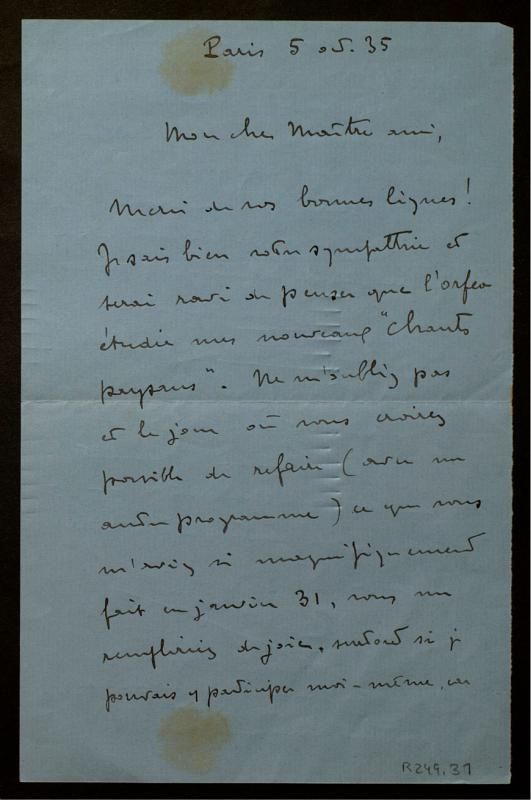 Paris 5 oct. 35
Mon cher Maître ami,
Merci de vos bonnes lignes !
Je sais bien votre sympathie et
serai ravi de penser que l'orfeo
étudie mes nouveaux "Chants
paysans". Ne m'oubliez pas
et le jour où vous croirez
possible de refaire (avec un
autre programme) ce que vous
m'aviez si magnifiquement
fait en janvier 31, vous me
rempliriez de joie, surtout si je
pouvais y participer moi-même, car
R249.31